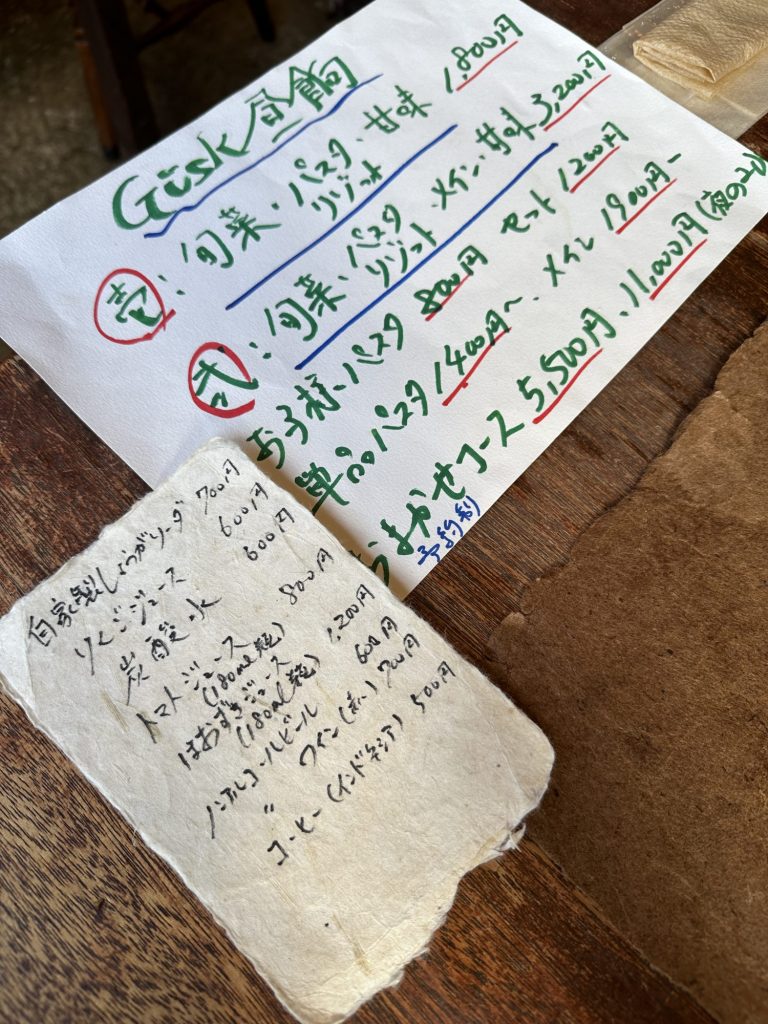 Gusk 昼餉
壱：旬菜・パスタ リゾット・甘味 1,800円
弐：旬菜・パスタ リゾット・メイン・甘味 3,200円
お子様パスタ 800円 セット 1200円
単品パスタ 1400円〜、メイン 1900円〜
おまかせコース 5,500円、11,000円(夜のみ)
予約制
自家製しょうがソーダ 700円
りんごジュース 600円
炭酸水 600円
トマトジュース 800円
(180ml瓶)
ほおずきジュース 1,200円
(180ml瓶)
ノンアルコールビール 600円
〃 ワイン(赤) 700円
コーヒー(インドネシア) 500円